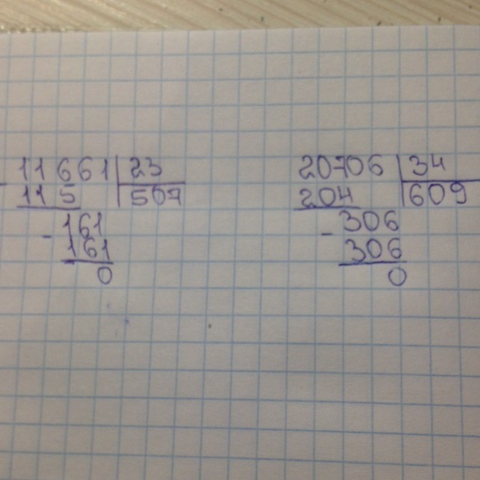 11661 23
115 507
- 161
161
0
20706 34
204 609
- 306
306
0